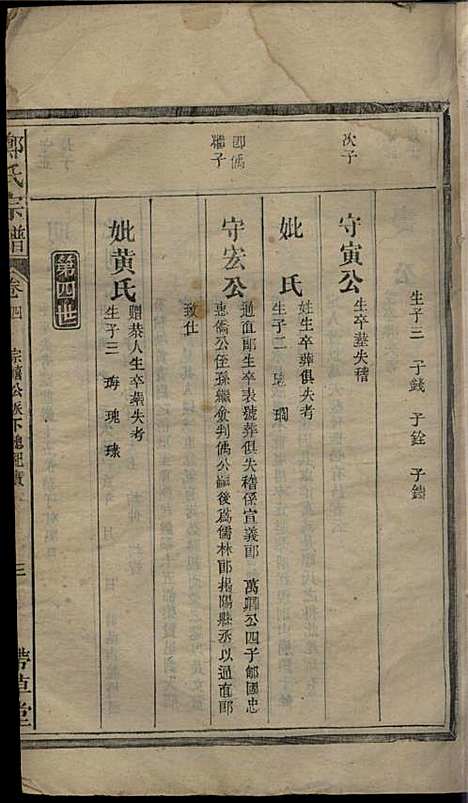 生子三 子錢 子銓
次子
守寅公
生卒塟失稽
妣 氏
姓生卒葬俱失考
生子二
卽偊
繼子
守宏公
通直郎生卒表號葬俱失稽係宣義郎 萬 公四子 國忠
惠僑公侄孫繼 判偊公嗣後爲儒林郎揭陽縣丞以通直郎
致仕
妣黃氏
贈恭人生卒塟失考
生子三 瑰
第四世
鄭氏宗譜
卷四
宗 公派下總紀實
三
帶草堂